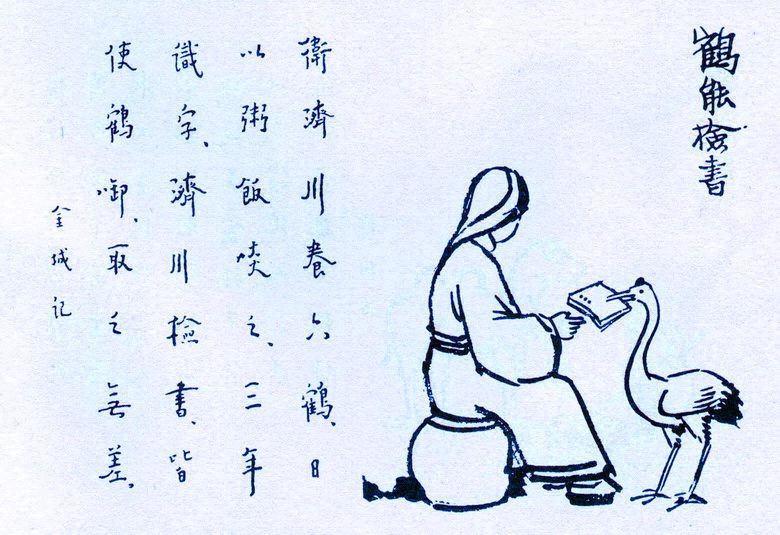 鶴能檢書
衛濟川養六鶴、日
以粥飯啖之、三年
識字、濟川檢書、皆
使鶴啣、取之無差。
金城記